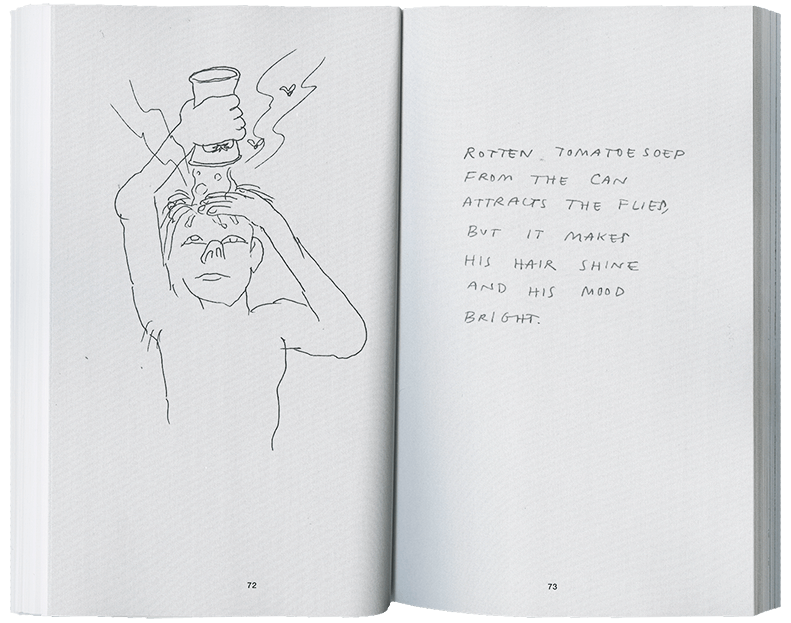 ROTTEN TOMATOESOEP
FROM THE CAN
ATTRACTS THE FLIES,
BUT IT MAKES
HIS HAIR SHINE
AND HIS MOOD
BRIGHT.
72
73